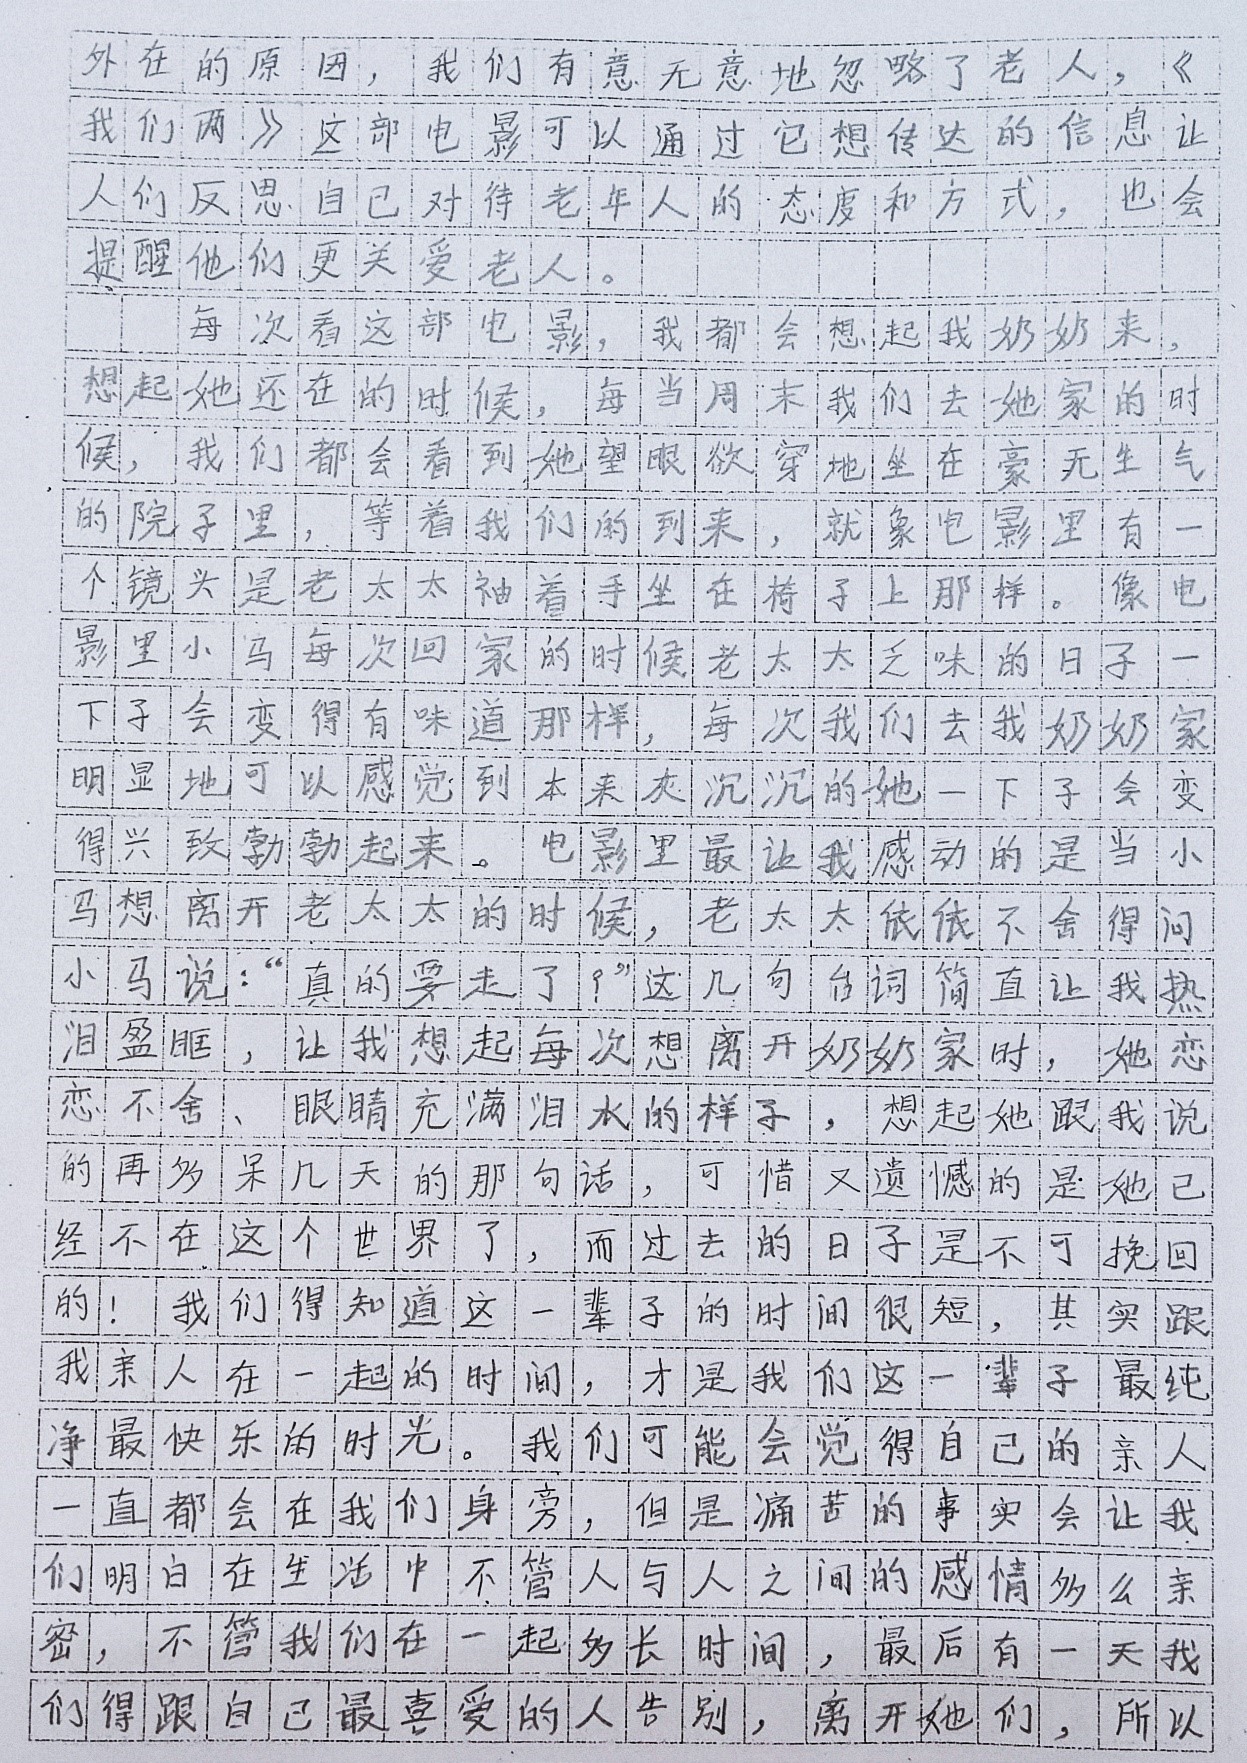 外在的原因，我们有意无意地忽略了老人，《
我们两》这部电影可以通过它想传达的信息让
人们反思自己对待老年人的态度和方式，也会
提醒他们更关爱老人。
每次看这部电影，我都会想起我奶奶来，
想起她还在的时候，每当周末我们去她家的时
候，我们都会看到她望眼欲穿地坐在豪无生气
的院子里，等着我们的到来，就象电影里有一
个镜头是老太太袖着手坐在椅子上那样。像电
影里小马每次回家的时候老太太乏味的日子一
下子会变得有味道那样，每次我们去我奶奶家
明显地可以感觉到本来灰沉沉的她一下子会变
得兴致勃勃起来。电影里最让我感动的是当小
马想离开老太太的时候，老太太依依不舍得问
小马说：“真的要走了？”这几句台词简直让我热
泪盈眶，让我想起每次想离开奶奶家时，她恋
恋不舍、眼睛充满泪水的样子，想起她跟我说
的再多呆几天的那句话，可惜又遗憾的是她已
经不在这个世界了，而过去的日子是不可挽回
的！我们得知道这一辈子的时间很短，其实跟
我亲人在一起的时间，才是我们这一辈子最纯
净最快乐的时光。我们可能会觉得自己的亲人
一直都会在我们身旁，但是痛苦的事实会让我
们明白在生活中不管人与人之间的感情多么亲
密，不管我们在一起多长时间，最后有一天我
们得跟自己最喜爱的人告别，离开她们，所以